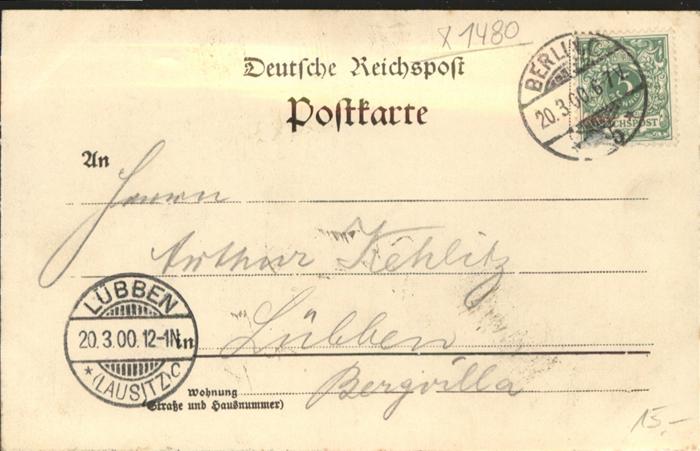 x 1480
Deutsche Reichspost
Postkarte
BERLIN, C.
20.3.00.6-7
REICHSPOST
An
Herrn
Arthur Kehlitz
LÜBBEN
20.3.00.12-1N
* (LAUSITZ) C
in
Lübben
Bergvilla
Wohnung
(Straße und Hausnummer)
15,-